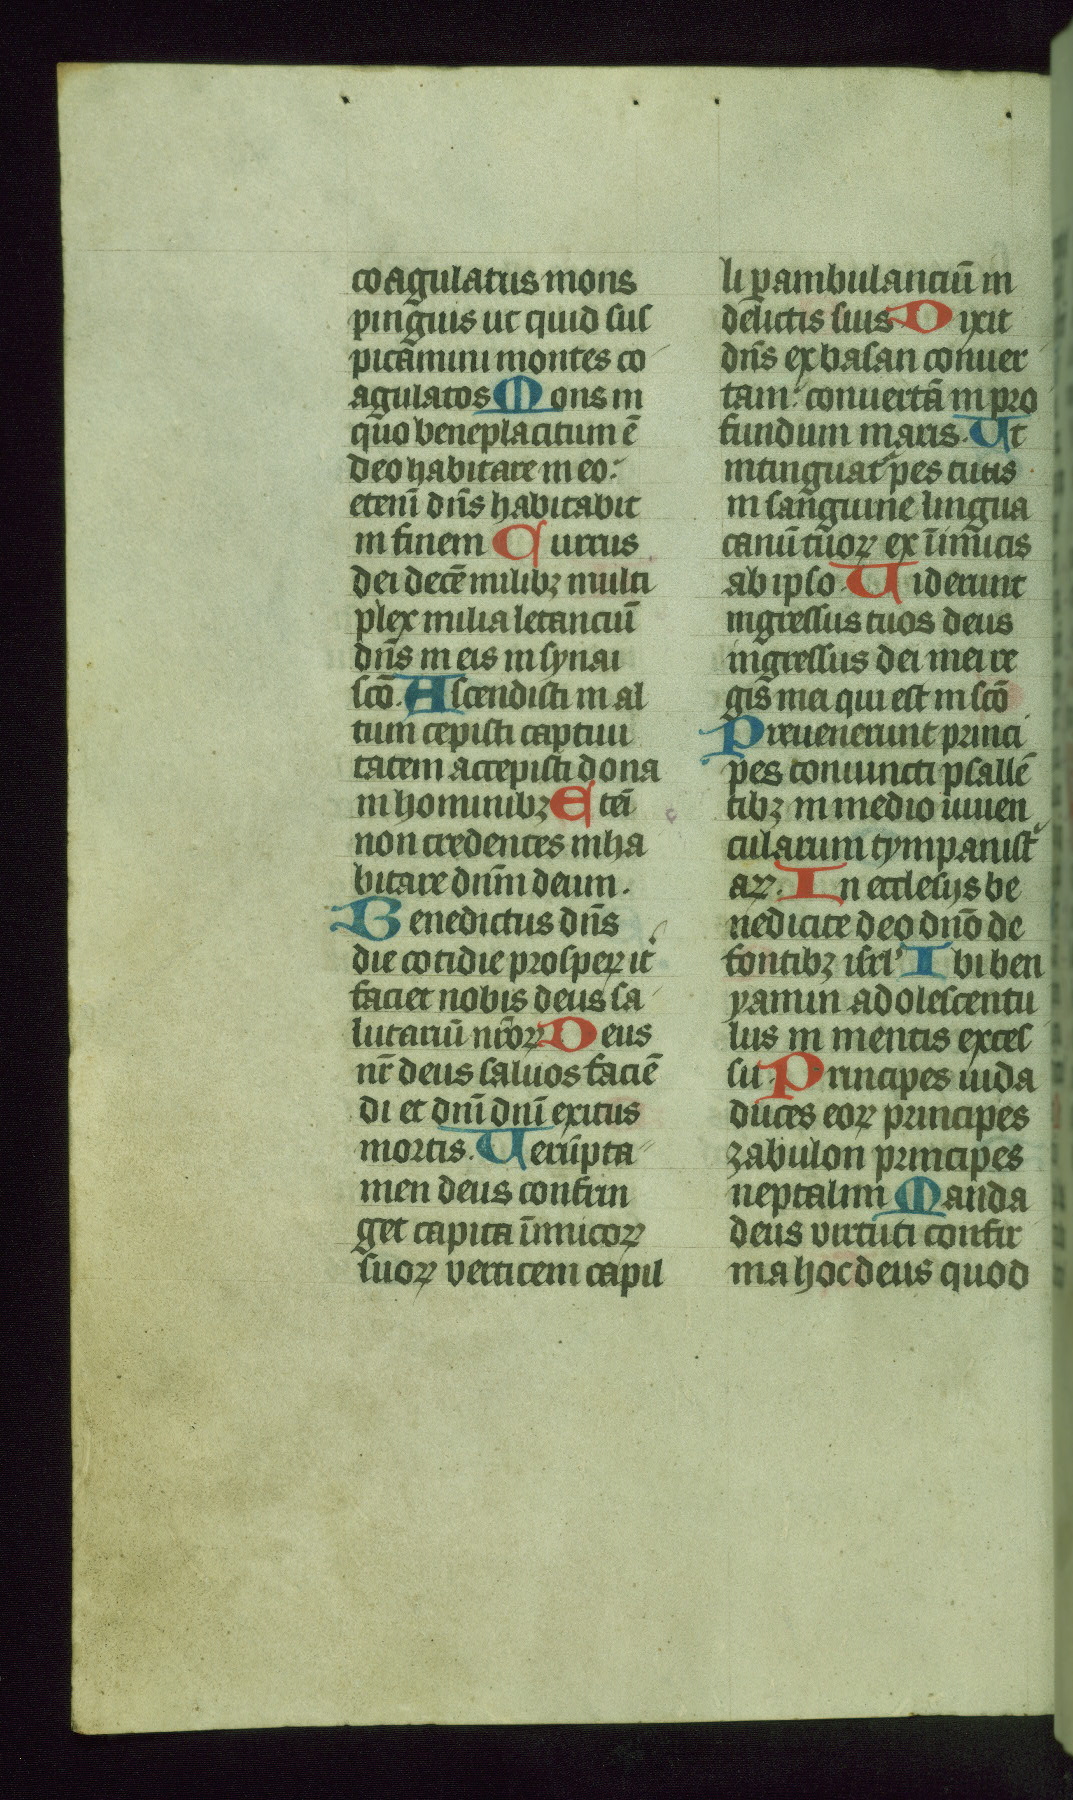 coagulatus mons
pinguis ut quid sus
picamini montes co
agulatos Mons in
quo beneplacitum ē
deo habitare in eo:
etenī dn̄s habitabit
in finem Currus
dei decē milibꝫ multi
plex milia letanciū
dn̄s in eis in synai
scō. Ascendisti in al
tum cepisti captiui
tatem accepisti dona
in hominibꝫ Eteī
non credentes inha
bitare dn̄m deum.
Benedictus dn̄s
die cotidie prosperꝝ it
faciet nobis deus sa
lutariū nr̄oꝝ Deus
nr̄ deus saluos faciē
di et dn̄i dn̄i exitus
mortis. Uerūpta
men deus confrin
get capita īimicoꝝ
suoꝝ verticem capil
li ꝑambulanciū in
delictis suis Dixit
dn̄s ex basan conuer
tam: conuertā in pro
fundum maris. Ut
intinguat᷑ pes tuus
in sanguine lingua
canū tuoꝝ ex īimicis
ab ipso. Uiderunt
ingressus tuos deus
ingressus dei mei re
gis mei qui est in scō
Preuenerunt princi
pes coniuncti psallē
tibꝫ in medio iuuen
cularum tympanist
aꝝ. In ecclesijs be
nedicite deo dn̄o de
fontibꝫ isrl' Ibi ben
yamin adolescentu
lus in mentis excel
su. Principes iuda
duces eoꝝ principes
zabulon principes
neptalim Manda
deus virtuti confir
ma hoc deus quod